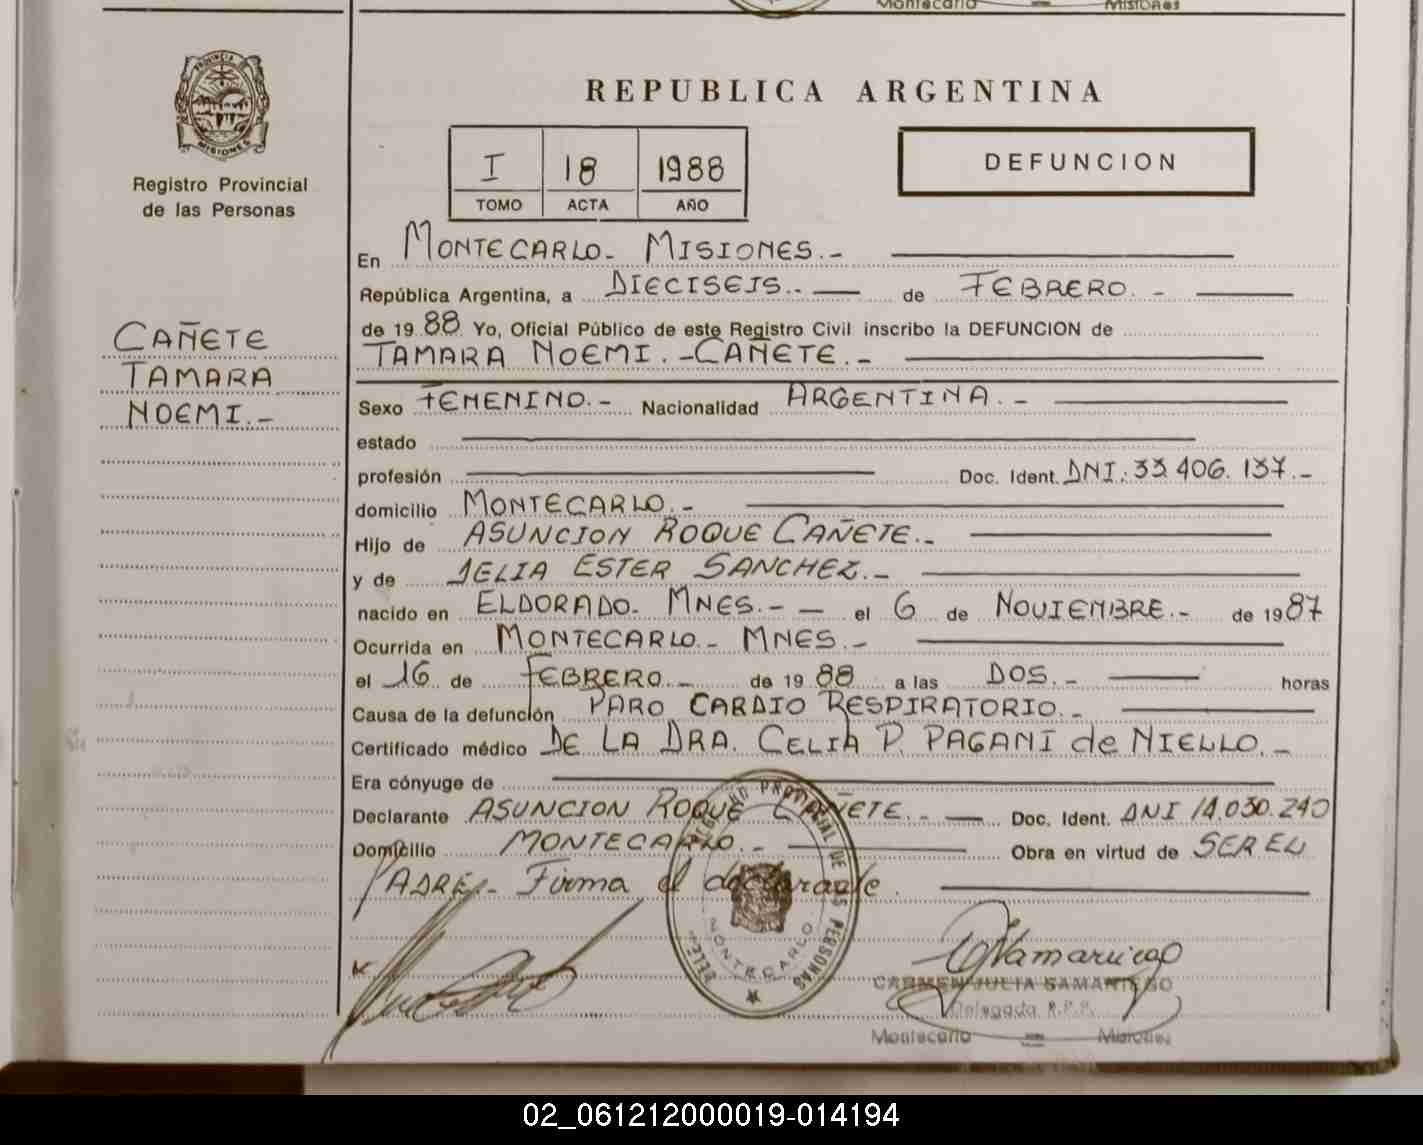 Montecarlo Misiones
REPUBLICA ARGENTINA
PROVINCIA DE
MISIONES
I 18 1988
DEFUNCION
TOMO ACTA AÑO
Registro Provincial
de las Personas
En MONTECARLO- MISIONES.-
República Argentina, a DIECISEIS.- de FEBRERO.-
de 1988 Yo, Oficial Público de este Registro Civil inscribo la DEFUNCION de
TAMARA NOEMI.-CAÑETE.-
CAÑETE
TAMARA
NOEMI.-
Sexo FEMENINO.- Nacionalidad ARGENTINA.-
estado
profesión Doc. Ident. DNI.33.406.137.-
domicilio MONTECARLO.-
Hijo de ASUNCION ROQUE CAÑETE.-
y de ESTER SANCHEZ.-
nacido en ELDORADO- MNES.-- el 6 de NOVIEMBRE.- de 1987
Ocurrida en MONTECARLO.- MNES.-
el 16 de FEBRERO.- de 1988 a las DOS.- horas
Causa de la defunción PARO CARDIO RESPIRATORIO.-
Certificado médico DE LA DRA. CELIA P. PAGANI de NIELLO.-
Era cónyuge de
Declarante ASUNCION ROQUE CAÑETE.- Doc. Ident. DNI 14.030.240
Domicilio MONTECARLO.- Obra en virtud de SER EL
PADRE.- Firma el declarante.
REGISTRO PROVINCIAL DE LAS PERSONAS
DELEG.
MONTECARLO
CARMEN JULIA SAMANIEGO
Delegada R.P.P.
Montecarlo Misiones
02_061212000019-014194